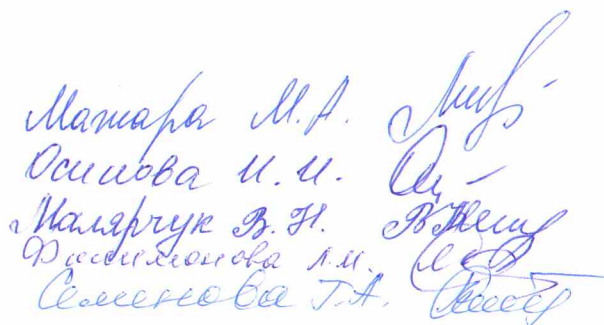 Матара М.А.
Осипова И.И.
Малярчук В.Н.
Филимонова Л.М.
Семенова Т.А.